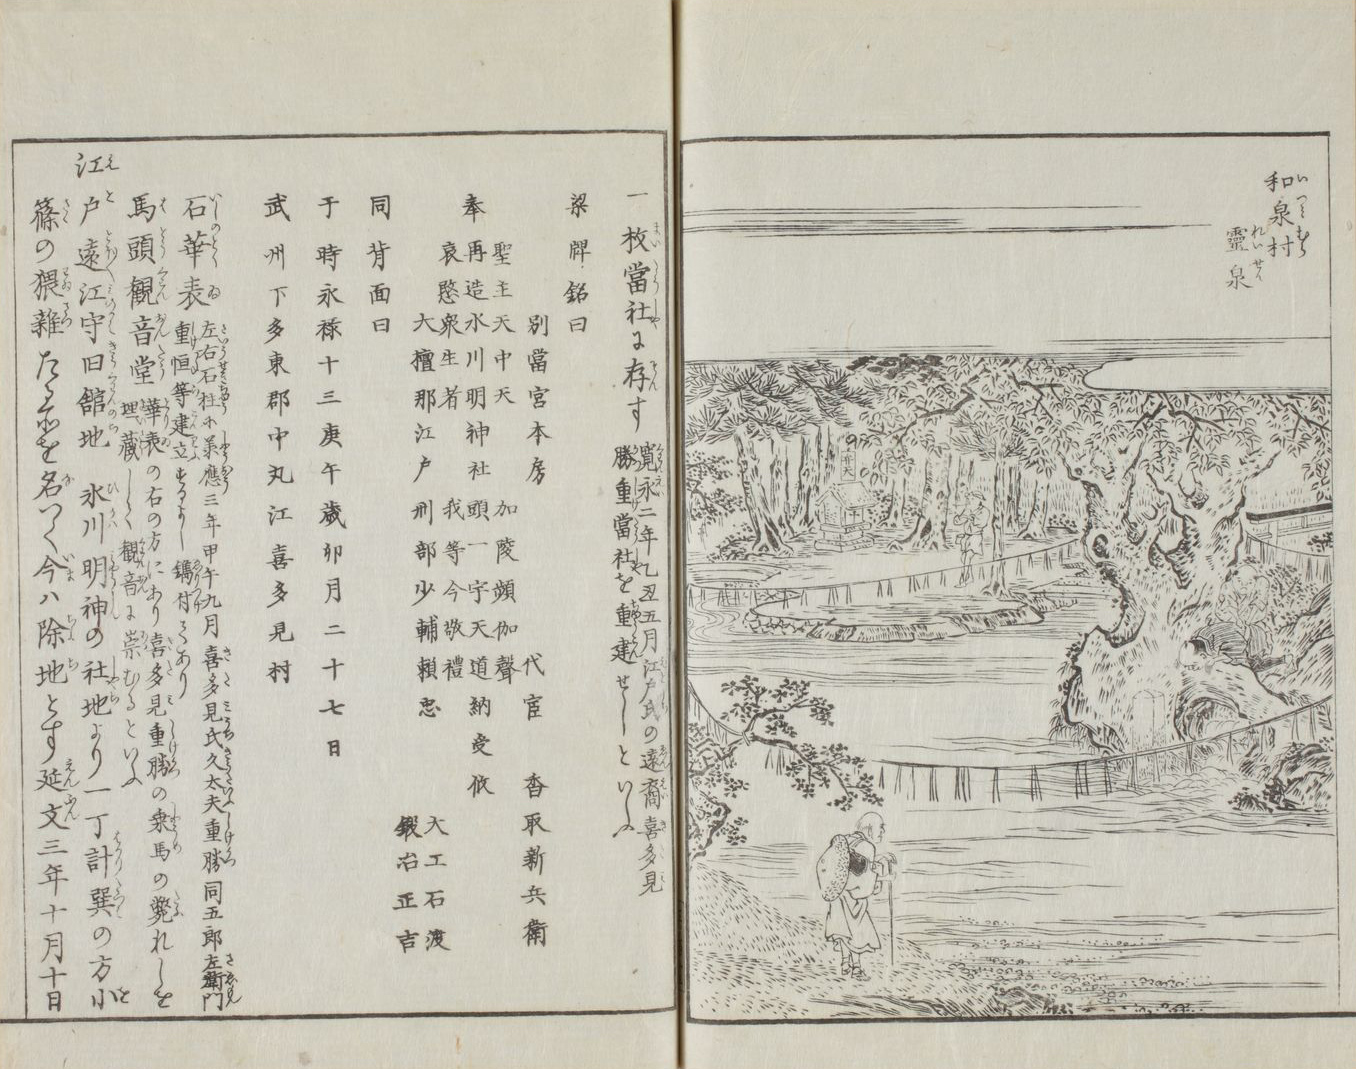 和泉村
靈泉
弁天
一枚當社に存す
寛永二年乙丑五月江戸氏の遠裔喜多見
勝重當社を重建せしといふ
梁牌銘曰
別當宮本房 代官 香取新兵衛
聖主天中天 加陵頻伽聲
奉再造氷川明神社頭一宇天道納受
哀愍衆生者 我等今敬禮
大檀那江戸刑部少輔賴忠
大工石渡
鍛冶正吉
同背面曰
于時永祿十三庚午歳卯月二十七日
武州下多東郡中丸江喜多見村
石華表
左右石柱に承應三年甲午九月喜多見氏久太夫重勝同五郎左衛門
重恒等建立するよし鐫付てあり
馬頭觀音堂
華表の右の方にあり喜多見重勝の乗馬の斃れしを
埋藏して觀音に崇むるといふ
江戸遠江守旧舘地 氷川明神の社地より一丁計巽の方小
篠の猥雜たる所を名つく今ハ除地とす延文三年十月十日